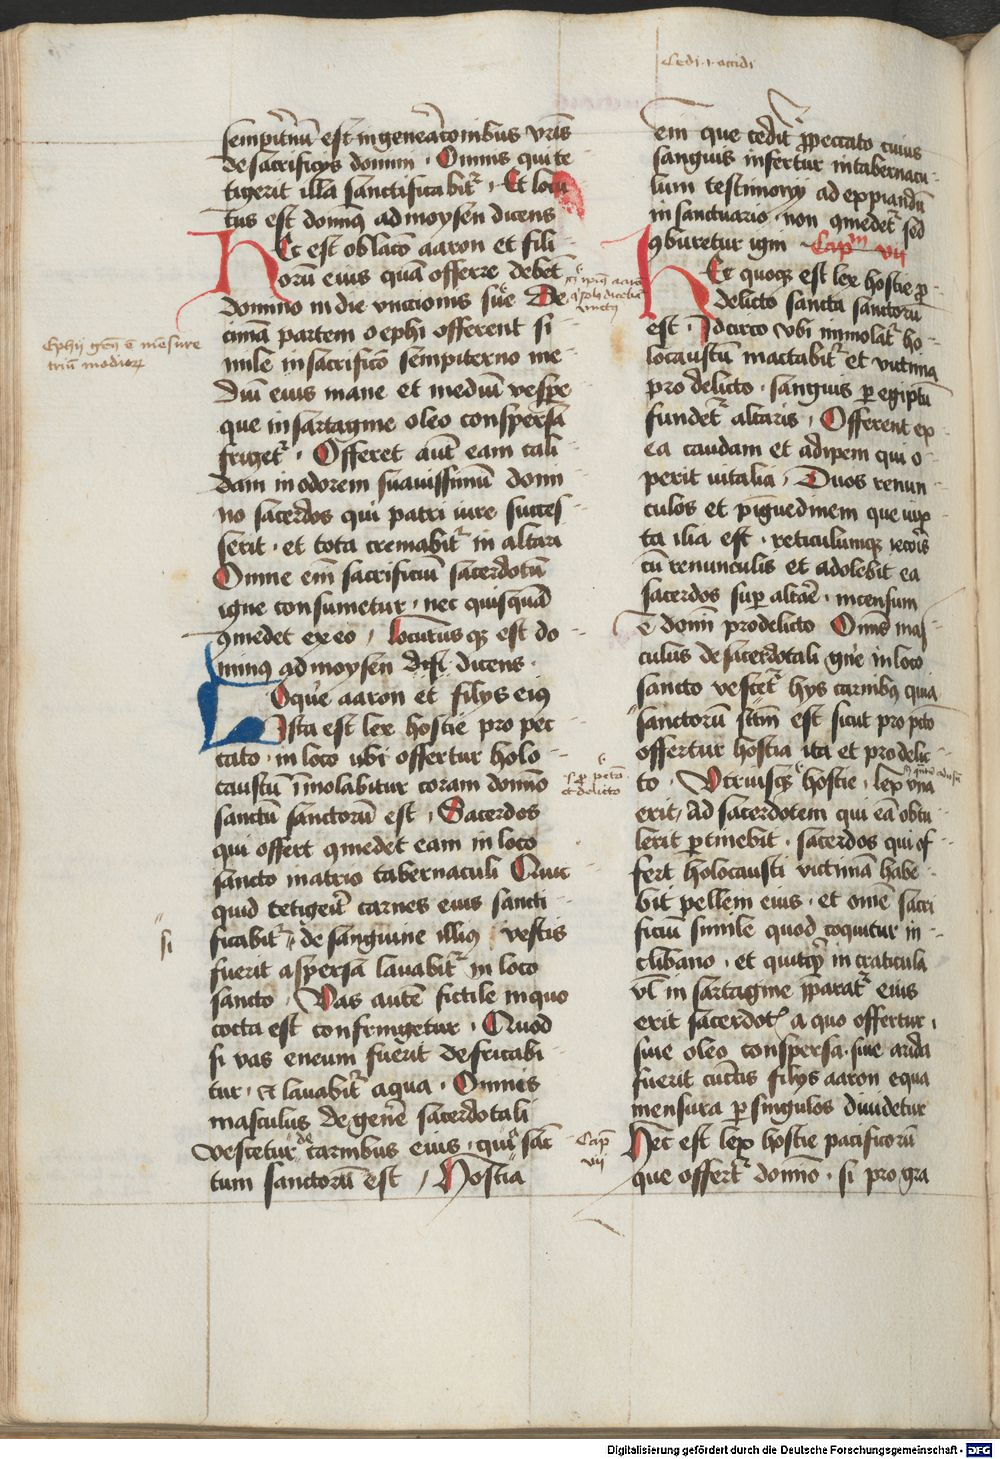 Cedi .i. occidi
sempit'nū est in gene'acionibus vr̄is
de sacrificijs domini . Omnis qui te
tigerit illa sanctificabit' . Et locu
tus est domin9 ad moysen dicens
Hec est oblacō aaron et fili
orū eius quā offerre debēt
domino in die vnctionis sue De
cimā partem oephi offerent si
mile in sacrificō sempiterno me
diū eius mane et mediū vespe
que in sartagine oleo conspersa
friget' . Offeret aut̄ eam cali
dam in odorem suauissimū domi
no sacerdos qui patri iure succes
serit . et tota cremabit' in altari
Omne em̄ sacrificiū sacerdotū
igne consumetur . nec quisquā
9medet ex eo / locutus q3 est do
minus ad moysen dicens .
Loq're aaron et filijs ei9
Ista est lex hostie pro pec
cato . in loco ubi offertur holo
caustū īmolabitur coram domīo
sanctū sanctorū est . Sacerdos
qui offert 9medet eam in loco
sancto in atrio tabernaculi Quic
quid tetigerit carnes eius sancti
ficabit' de sanguine illi9 vestis
si
fuerit aspersa lauabit' in loco
sancto . Vas autē fictile in quo
cocta est confringetur . Quod
si vas eneum fuerit defricabi
tur . et lauabit' aqua . Omnis
masculus de gen'e sacerdotali
vescetur de carnibus eius . quia sāc
tum sanctorū est / Hostia
Ephi gen9 ē mēsure
triū modiorum
l' p pctō
et delicto
Cap̄
vii
em que cedit' p peccato cuius
sanguis infertur in tabernacu
lum testimonij ad expiandū
in sanctuario . non 9medet' sed
9buretur igni Capm vii
Hec quoq3 est lex hostie p
delicto sancta sanctorū
est . Idcirco vbi immolat' ho
locaustū mactabit' et victima
pro delicto . sanguis p egiptū
fundet' altaris . Offerent ex
ea caudam et adipem qui o
perit vitalia / Duos renun
culos et pīguedinem que iux
ta ilia est . reticulumq3 iecoris
cū renunculis et adolebit ea
sacerdos sup altare . incensum
ē domī pro delicto Omīs mas
culus de sacerdotali gn'e in loco
sancto vescet' hijs carnibus quia
sanctorū sctm̄ est sicut pro pctō
offertur hostia ita et pro delic
to . Vtriusq3 hostie . lex vna
erit / Ad sacerdotem qui eā obtu
lerit ptinebit . sacerdos qui of
fert holocausti victimā habe
bit pellem eius . et omē sacri
ficiū simile quod coquitur in
clibano . et quitq'd in craticula
vl' in sartagine pparat' eius
erit sacerdotis a quo offertur .
siue oleo conspersa . siue arida
fuerit cunctis filijs aaron equa
mensura p singulos diuidetur
Hec est lex hostie pacificorū
que offert' domīo . si pro gra
Digitalisierung gefördert durch die Deutsche Forschungsgemeinschaft - DFG